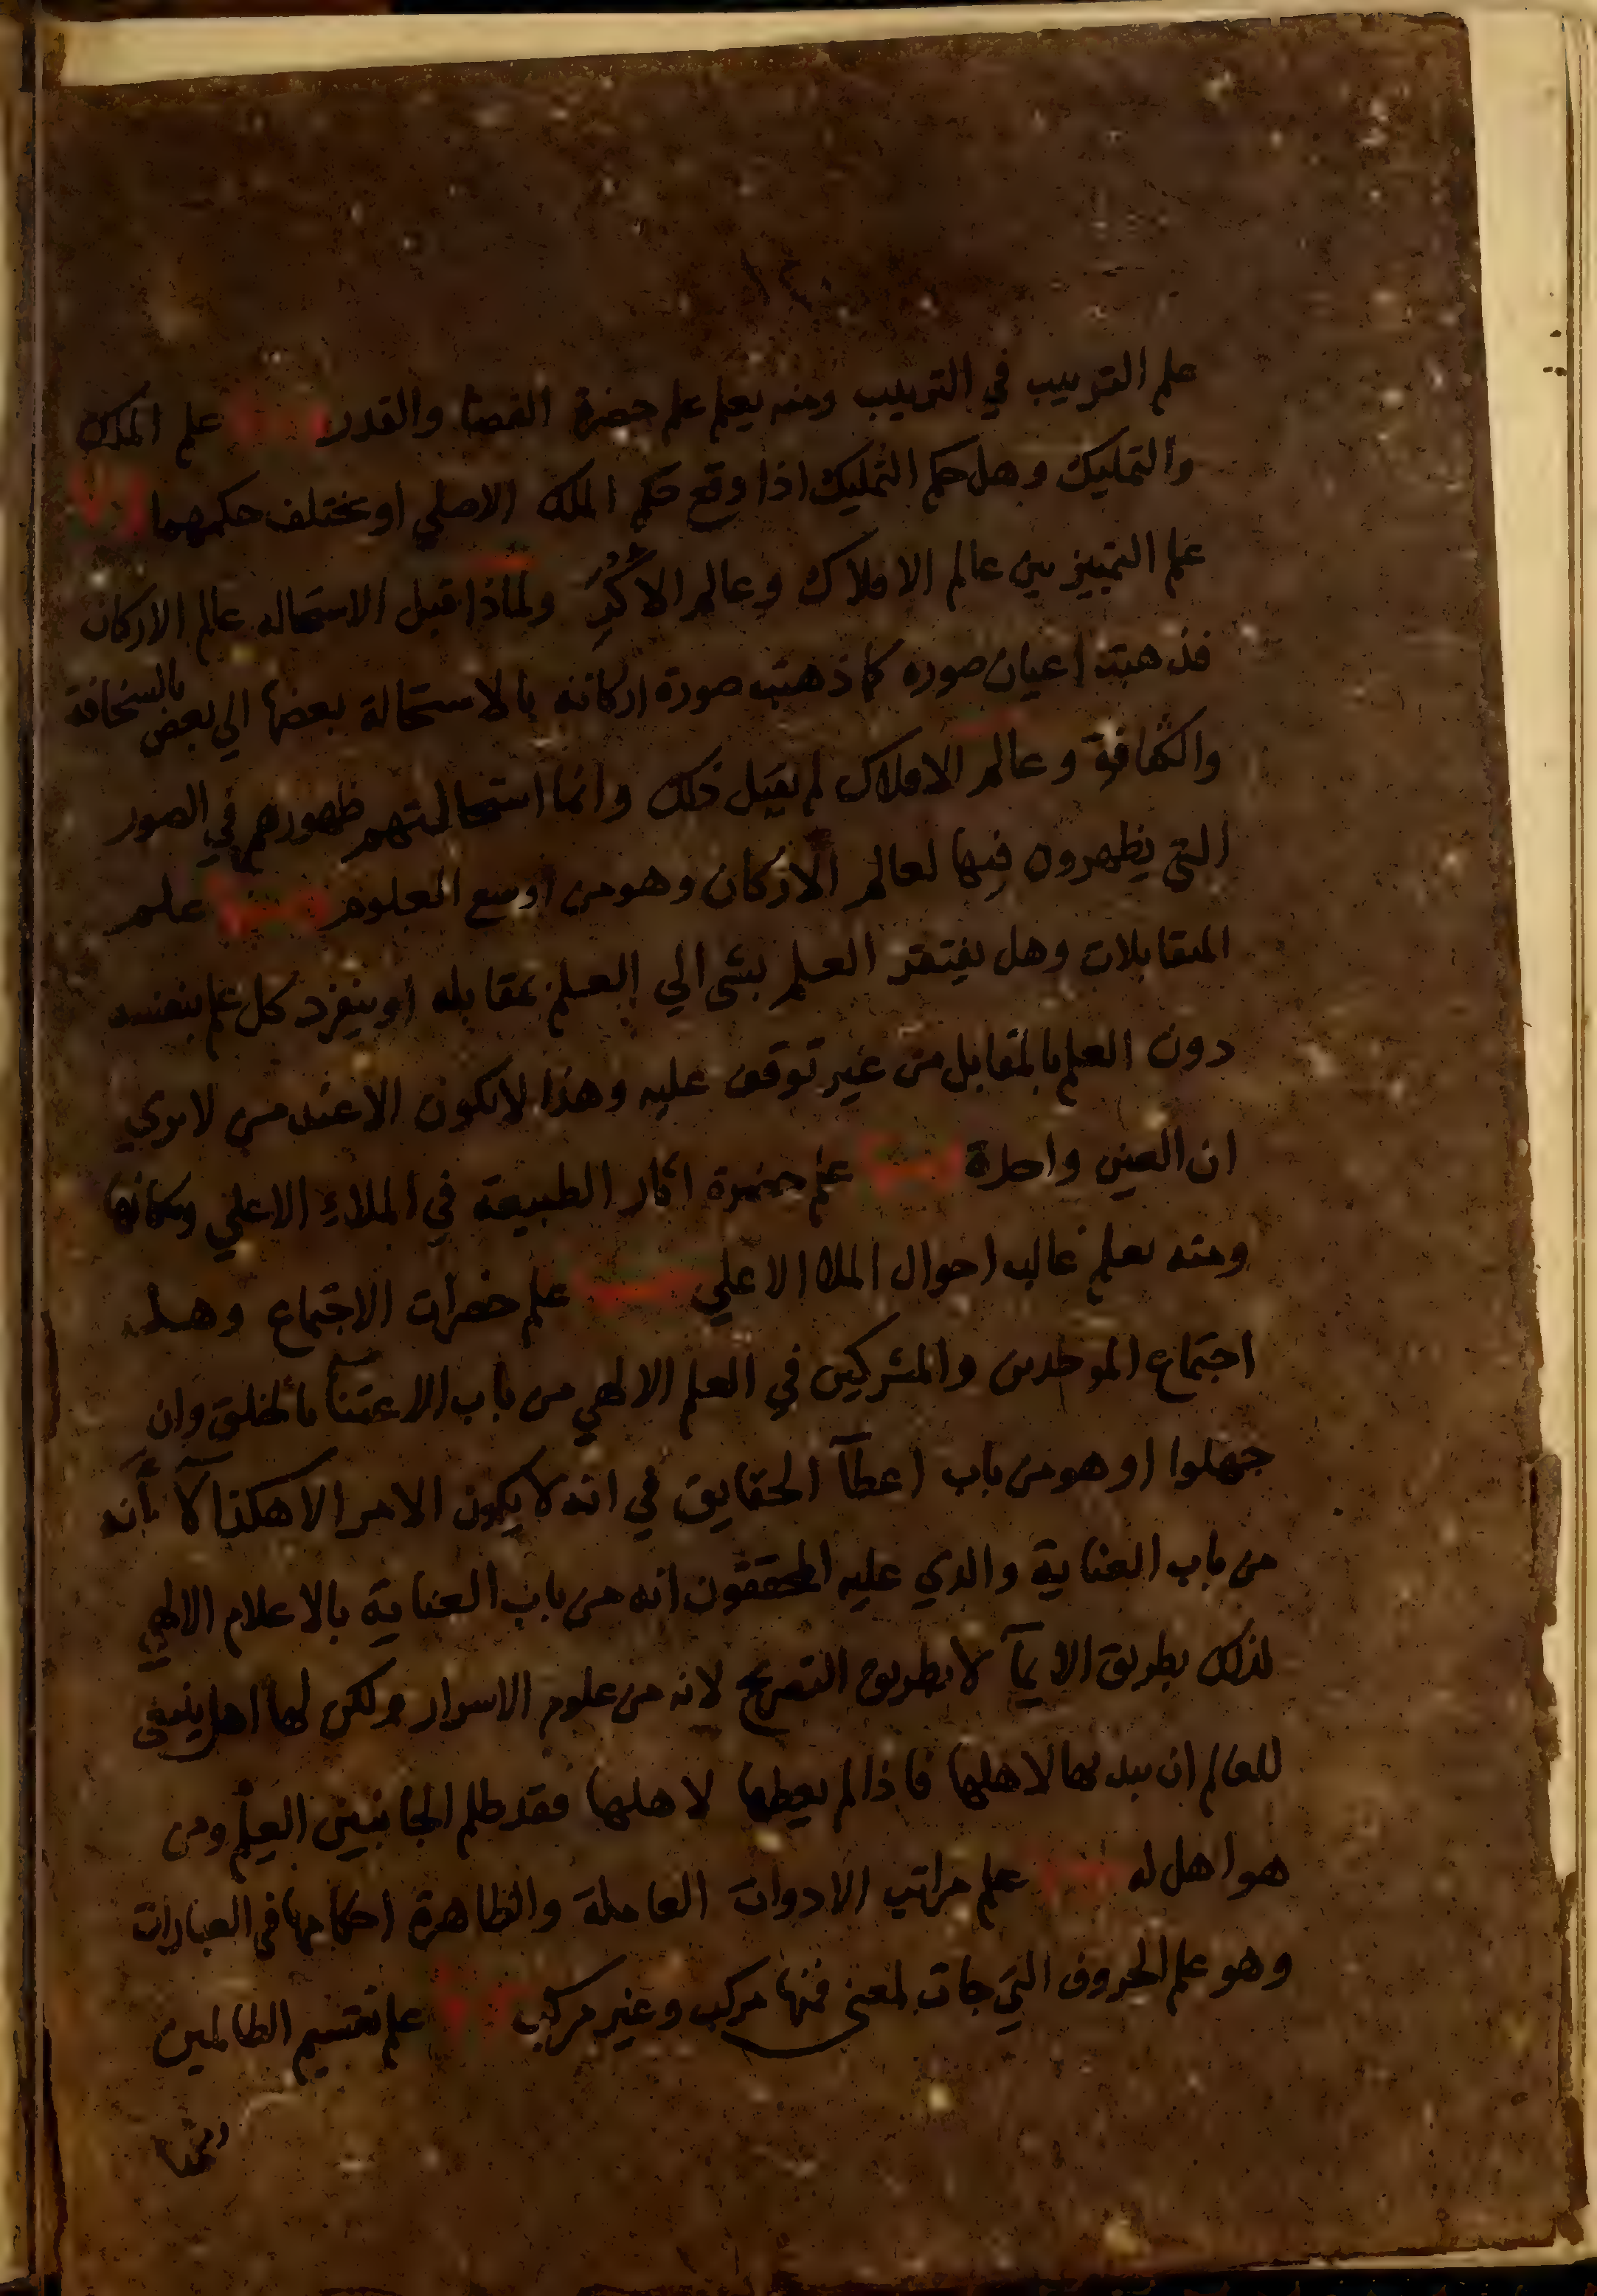 علم الترتيب في الترتيب ومنه يعلم علم حضرة القضا والقدر علم الملك
والتمليك وهل حكم التمليك اذا وقع حكم الملك الاصلي او يختلف حكمهما
علم التمييز بين عالم الافلاك وعالم الاكر ولماذا قبل الاستحاله عالم الاركان
فذهبت اعيان صوره كما ذهبت صورة اركانه بالاستحالة بعضها الي بعض بالسخافة
والكثافة وعالم الافلاك لم يقبل ذلك وانما استحالتهم ظهورهم في الصور
التي يظهرون فيها لعالم الاركان وهو من اوسع العلوم علم
المتقابلات وهل يفتقر العلم بشى الي العلم بمقابله او ينفرد كل علم بنفسه
دون العلم بالمقابل من غير توقف عليه وهذا لا يكون الا عند من لا يري
ان العين واحدة علم حضرة اثار الطبيعة في الملاء الاعلي ومكانها
ومنه يعلم غالب احوال الملا الاعلي علم حضرات الاجتماع وهل
اجتماع الموحدين والمشركين في العلم الالهي من باب الاعتنآ بالخلق وان
جهلوا او هو من باب اعطآ الحقايق في انه لا يكون الامر الا هكذا لا انه
من باب العناية والذي عليه المحققون انه من باب العناية بالاعلام الالهي
لذلك بطريق الايمآ لا بطريق التصريح لانه من علوم الاسرار ولكن لها اهل ينبغي
للعالم ان يبديها لاهلها فاذا لم يعطها لاهلها فقد ظلم الجانبين العلم ومن
هو اهل له علم مراتب الادوات العاملة والظاهرة احكامها في العبارات
وهو علم الحروف التي جات لمعنى فمنها مركب وغير مركب علم تقسيم الظالمين